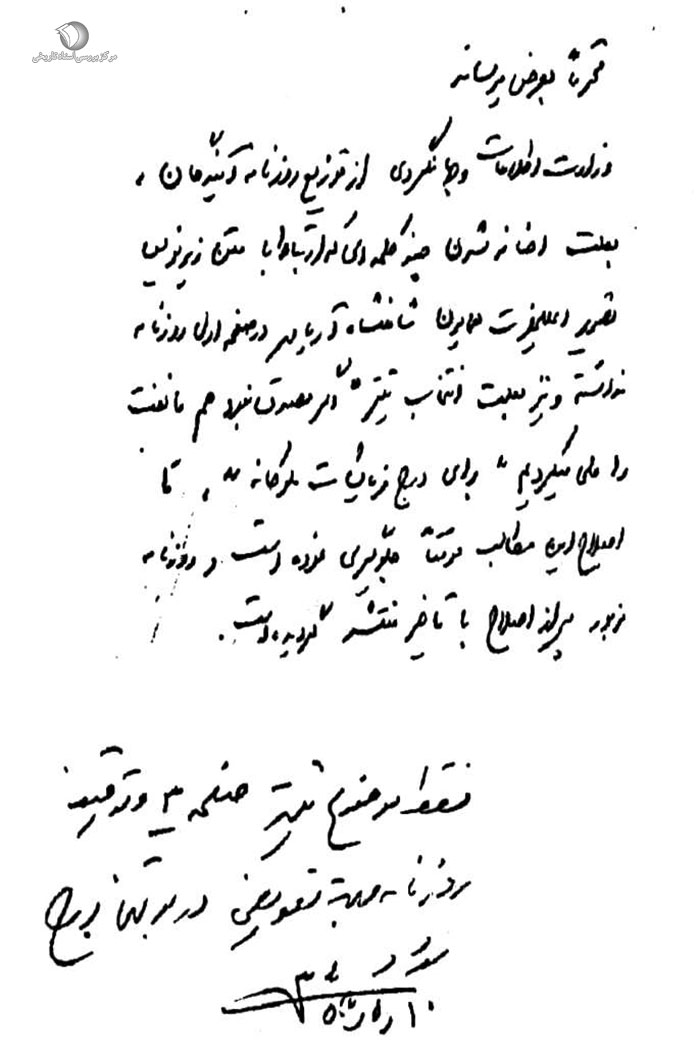 مرکز بررسی اسناد تاریخی
محترماً بعرض میرساند
وزارت اطلاعات و جهانگردی از توزیع روزنامه آیندگان ،
بعلت اضافه شدن چند کلمه ای که ارتباط با متن زیرنویس
تصویر اعلیحضرت همایون شاهنشاه آریامهر در صفحه اول روزنامه
نداشته و نیز بعلت انتخاب تیتر " اگر مصدق نبود هم ما نفت
را ملی میکردیم " برای درج فرمایشات ملوکانه ، تا
اصلاح این مطالب موقتاً جلوگیری نموده است و روزنامه
مزبور پس از اصلاح با تاخیر منتشر گردیده است .
فقط موضوع تیتر صفحه ۳ و توقیف
روزنامه جهت تعویض در بولتن درج